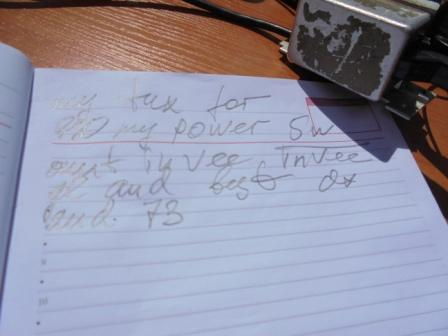 my tnx for
QSO my power 5W
ant inVee inVee
and best dx
and. 73